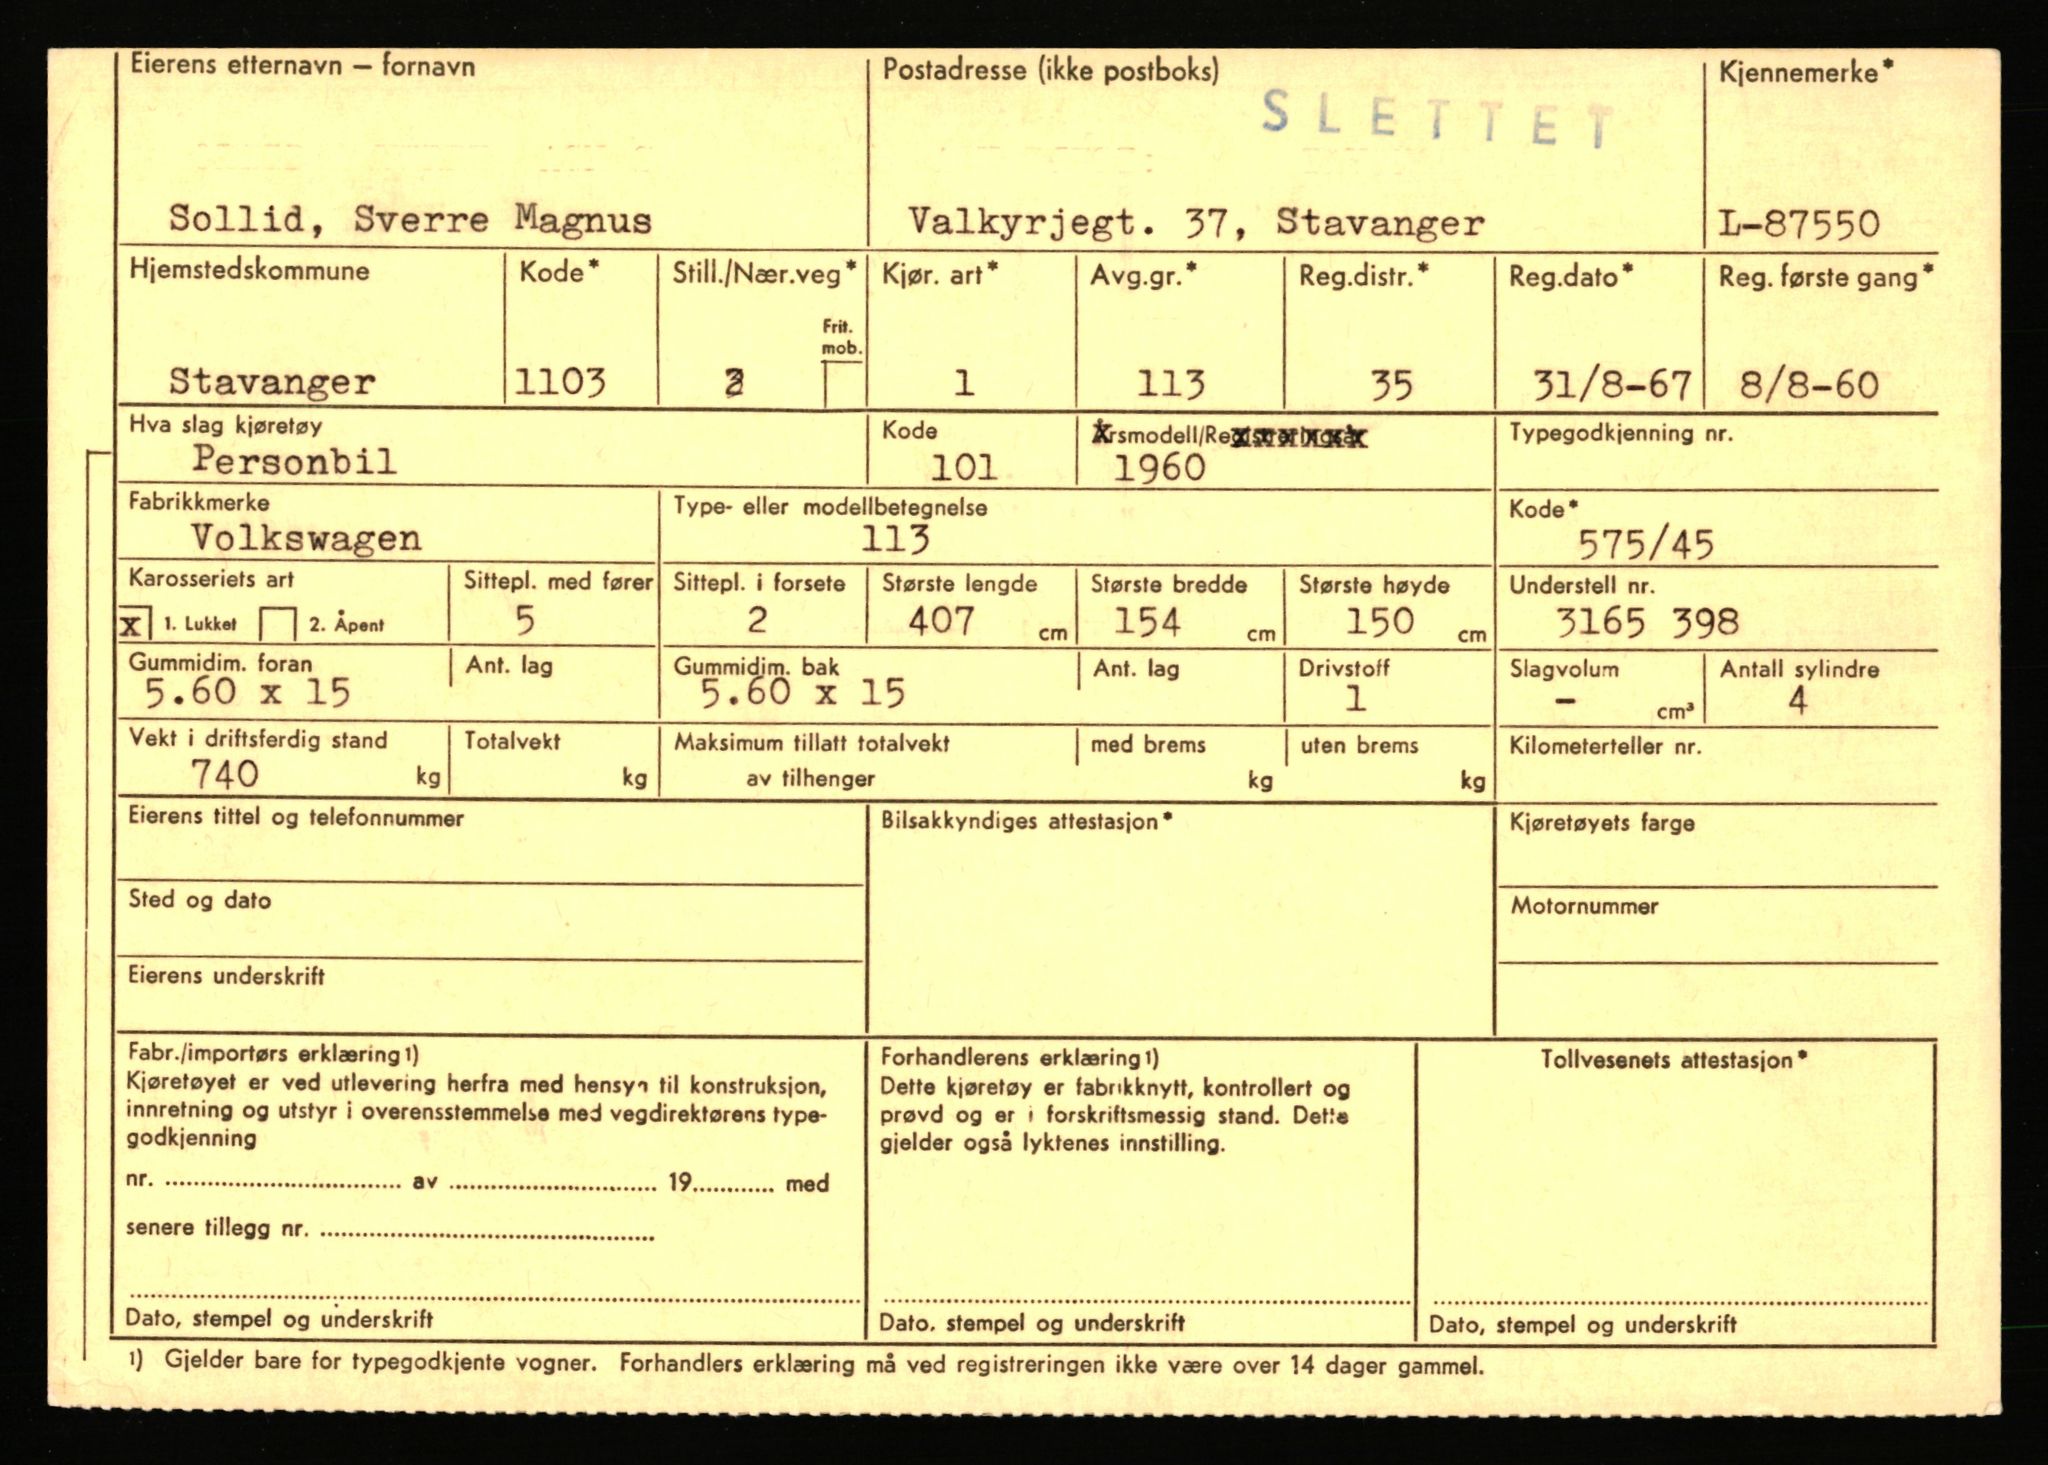 Eierens etternavn – fornavn
Postadresse (ikke postboks)
Kjennemerke*
SLETTET
Sollid, Sverre Magnus
Valkyrjegt. 37, Stavanger
L-87550
Hjemstedskommune
Kode*
Still./Nær.veg*
Kjør. art*
Avg.gr.*
Reg.distr.*
Reg.dato*
Reg. første gang*
Frit. mob.
Stavanger
1103
1
113
35
31/8-67
8/8-60
Hva slag kjøretøy
Kode
Årsmodell/Registreringsår
Typegodkjenning nr.
Personbil
101
1960
Fabrikkmerke
Type- eller modellbetegnelse
Kode*
Volkswagen
113
575/45
Karosseriets art
Sittepl. med fører
Sittepl. i forsete
Største lengde
Største bredde
Største høyde
Understell nr.
x 1. Lukket 2. Åpent
5
2
407 cm
154 cm
150 cm
3165 398
Gummidim. foran
Ant. lag
Gummidim. bak
Ant. lag
Drivstoff
Slagvolum
Antall sylindre
5.60 x 15
5.60 x 15
1
- cm³
4
Vekt i driftsferdig stand
Totalvekt
Maksimum tillatt totalvekt
med brems
uten brems
Kilometerteller nr.
740 kg
kg
av tilhenger
kg
kg
Eierens tittel og telefonnummer
Bilsakkyndiges attestasjon*
Kjøretøyets farge
Sted og dato
Motornummer
Eierens underskrift
Fabr./importørs erklæring1)
Kjøretøyet er ved utlevering herfra med hensyn til konstruksjon,
innretning og utstyr i overensstemmelse med vegdirektørens type-
godkjenning
nr. .................... av .................... 19............ med
senere tillegg nr. ....................
Dato, stempel og underskrift
Forhandlerens erklæring1)
Dette kjøretøy er fabrikknytt, kontrollert og
prøvd og er i forskriftsmessig stand. Dette
gjelder også lyktenes innstilling.
Dato, stempel og underskrift
Tollvesenets attestasjon*
Dato, stempel og underskrift
1) Gjelder bare for typegodkjente vogner. Forhandlers erklæring må ved registreringen ikke være over 14 dager gammel.